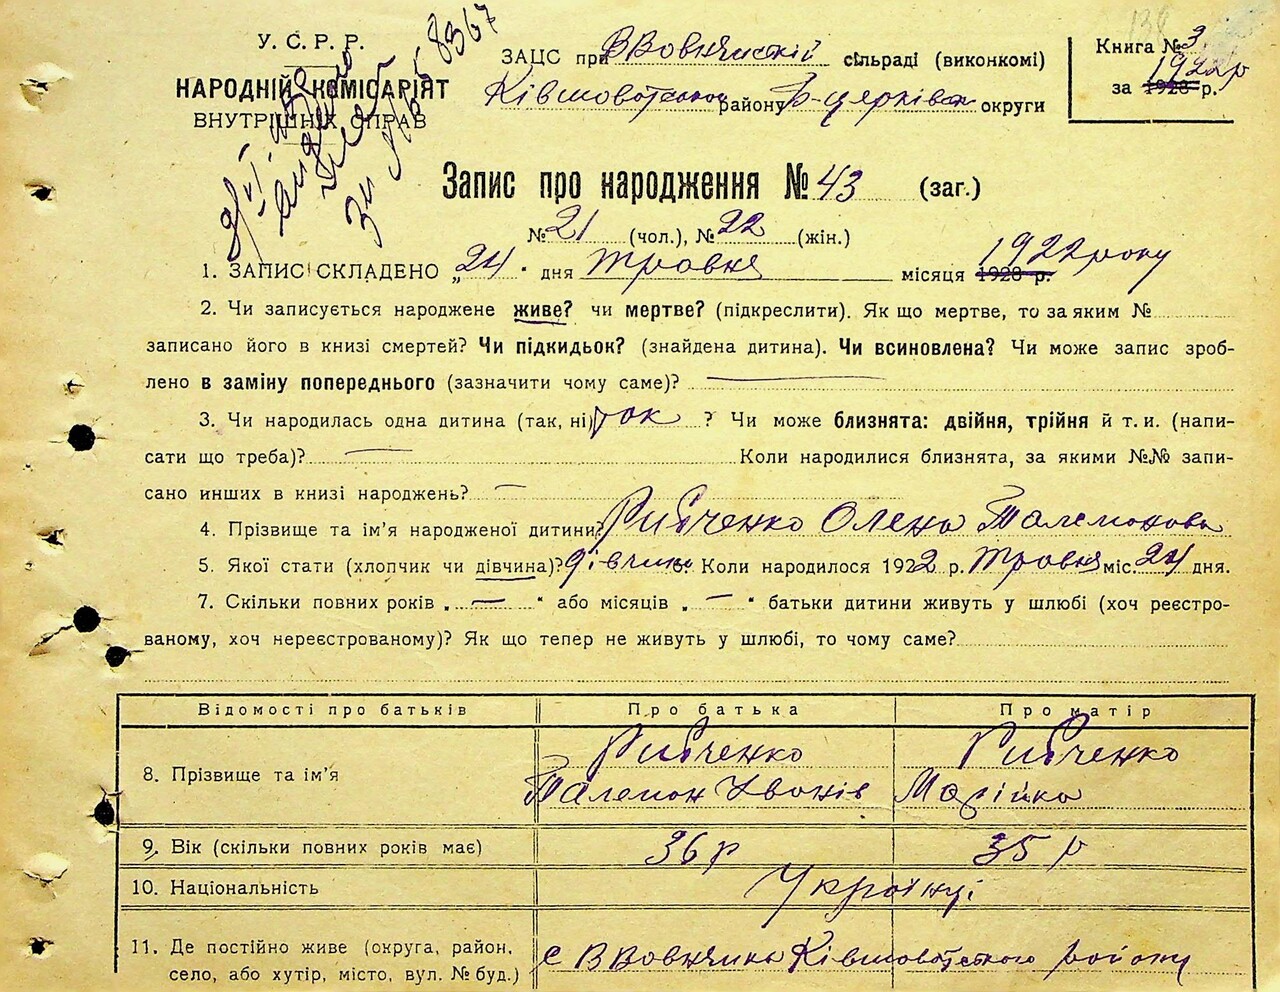 У. С. Р. Р.
НАРОДНІЙ КОМІСАРІЯТ
ВНУТРІШНІХ СПРАВ
8367
ЗАЦС при В Вовнянській сільраді (виконкомі)
Ківшоватськом району Б-церківськ округи
138
Книга № 3
1922 р
за 1928 р.
Запис про народження № 43 (заг.)
№ 21 (чол.), № 22 (жін.)
1. ЗАПИС СКЛАДЕНО „24" дня травня місяця 1928 р. 1922 року
2. Чи записується народжене живе? чи мертве? (підкреслити). Як що мертве, то за яким №
записано його в книзі смертей? Чи підкидьок? (знайдена дитина). Чи всиновлена? Чи може запис зроб-
лено в заміну попереднього (зазначити чому саме)? —
3. Чи народилась одна дитина (так, ні) так ? Чи може близнята: двійня, трійня й т. и. (напи-
сати що треба)? — Коли народилися близнята, за якими №№ запи-
сано инших в книзі народжень? —
4. Прізвище та ім'я народженої дитини? Рибченко Олена Палемонова
5. Якої стати (хлопчик чи дівчина)? дівчина 6. Коли народилося 1922 р. травня міс. 24 дня.
7. Скільки повних років „ — " або місяців „ — " батьки дитини живуть у шлюбі (хоч реєстро-
ваному, хоч нереєстрованому)? Як що тепер не живуть у шлюбі, то чому саме?
Відомості про батьків Про батька Про матір
8. Прізвище та ім'я Рибченко Палемон Іванів Рибченко Марійка
9. Вік (скільки повних років має) 36 р 35 р
10. Національність Українці
11. Де постійно живе (округа, район,
село, або хутір, місто, вул. № буд.) с В Вовнянка Ківшоватського району